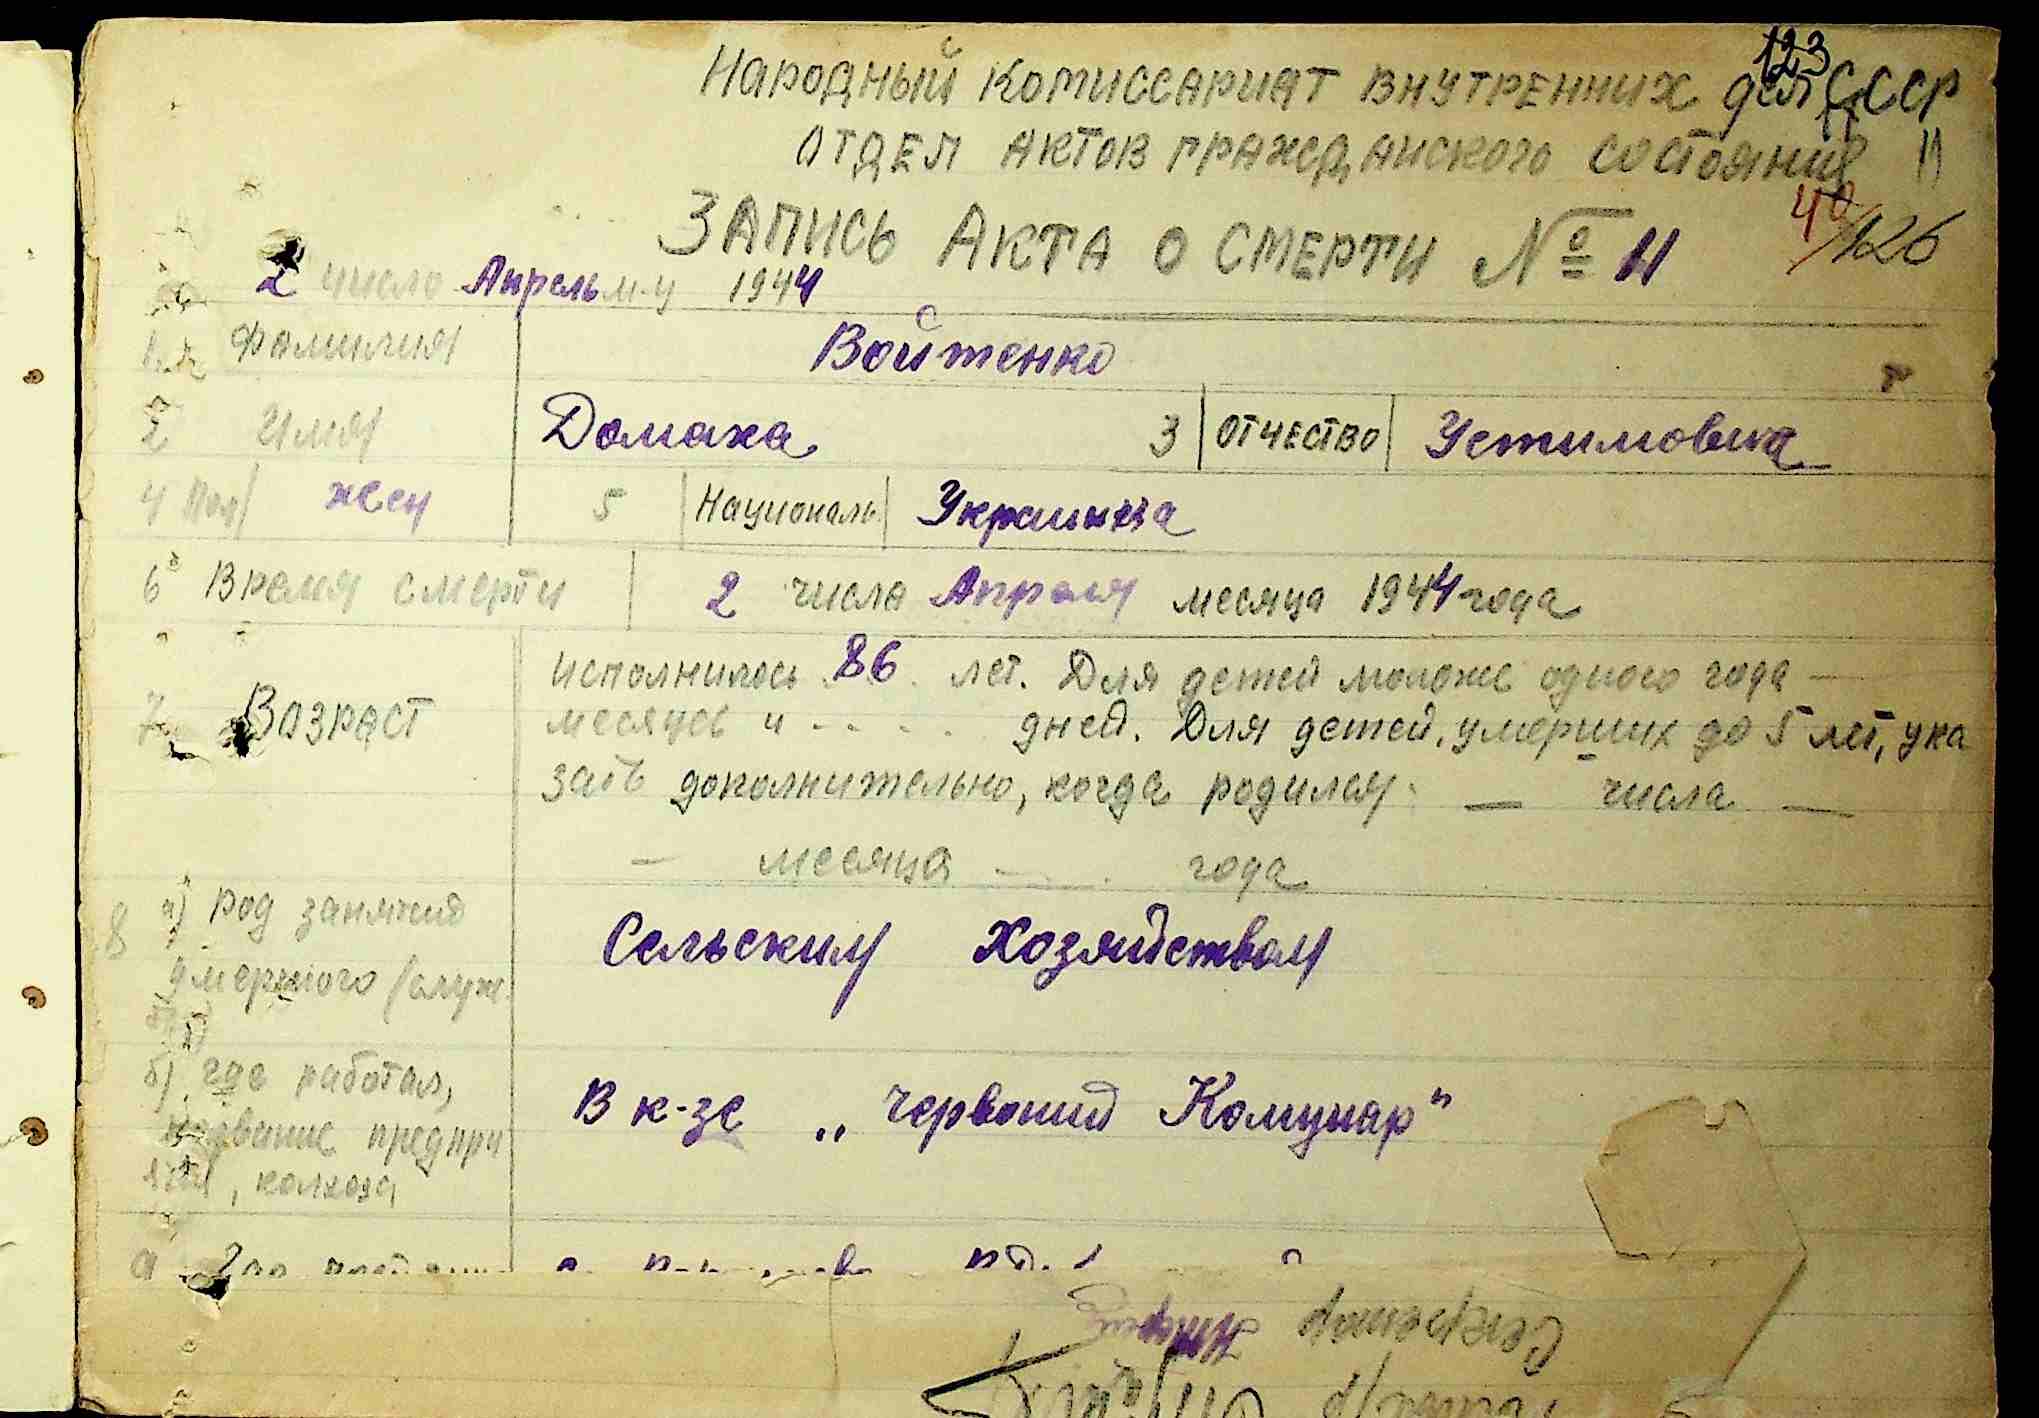 123
Народный комиссариат внутренних дел СССР
Отдел актов гражданского состояния
40/126
Запись Акта о смерти № 11
2 число Апрель м-ц 1944
Фамилия Войтенко
2 Имя Домаха 3 Отчество Устимовна
4 Пол жен 5 Националь Украинка
6 Время смерти 2 числа Апреля месяца 1944 года
7 Возраст исполнилось 86 лет. Для детей моложе одного года —
месяцев и - - - - дней. Для детей, умерших до 5 лет, ука
зать дополнительно, когда родился — числа —
— месяца — года
8 а) род занятий
умершего /служ. Сельским Хозяйством
б) где работал,
название предпри
ятия, колхоза В к-зе „Червоний Комунар"
9
Секретарь